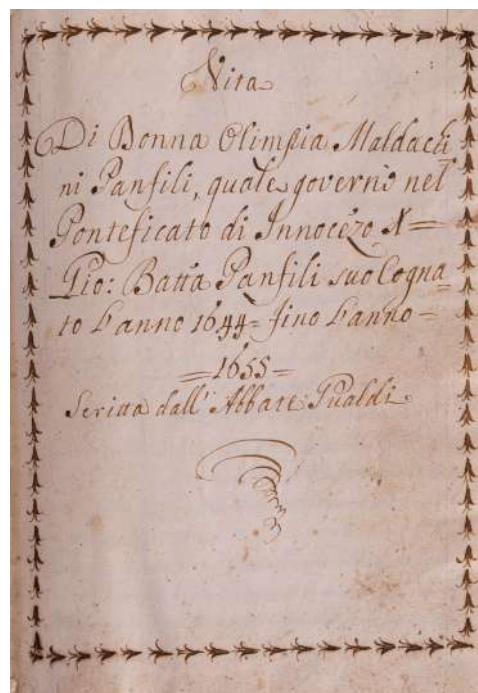 Vita
Di Donna Olimpia Maldachi
ni Panfili, quale governò nel
Ponteficato di Innocẽzo X=
Gio: Batta Panfili suo Cogna=
to l'anno 1644= fino l'anno=
=1655=
Scritta dall' Abbate Gualdi.